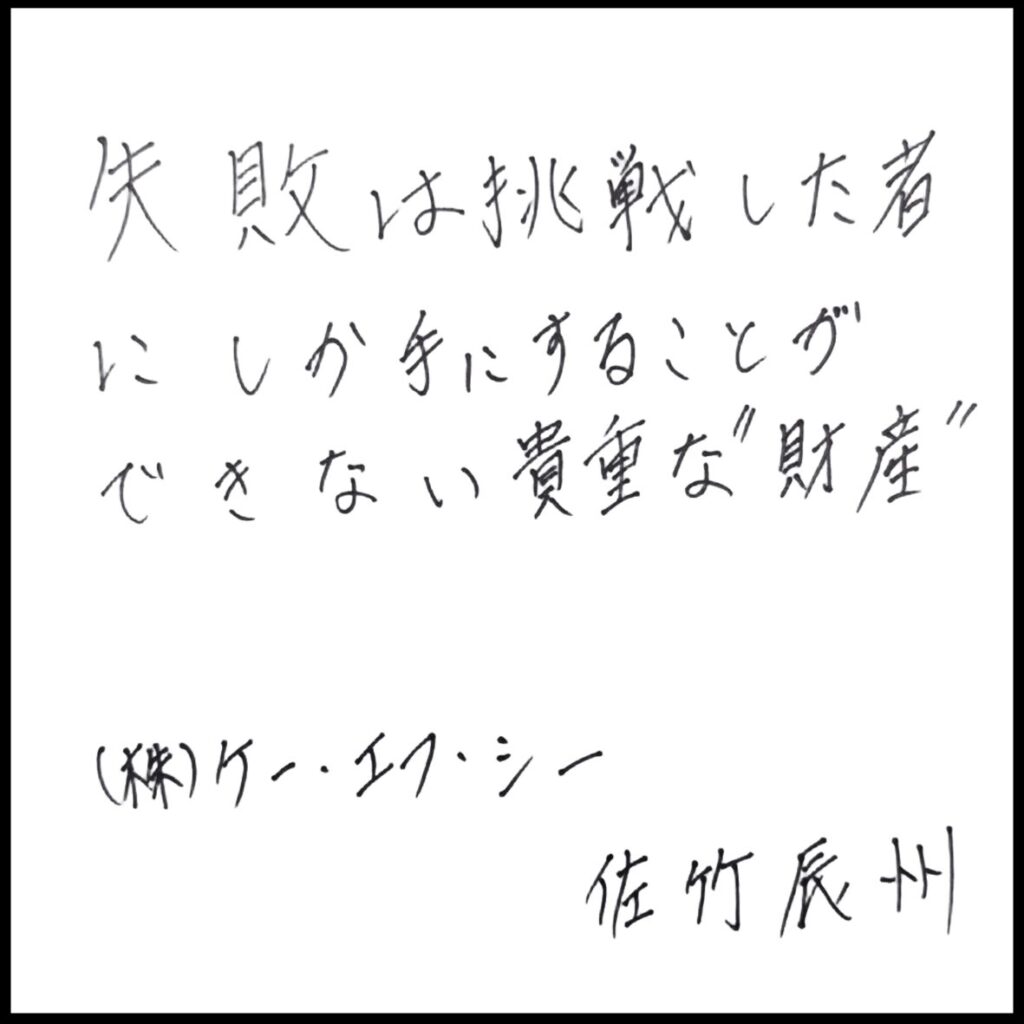 失敗は挑戦した者
にしか手にすることが
できない貴重な"財産"
(株)ケー・エフ・シー
佐竹辰州